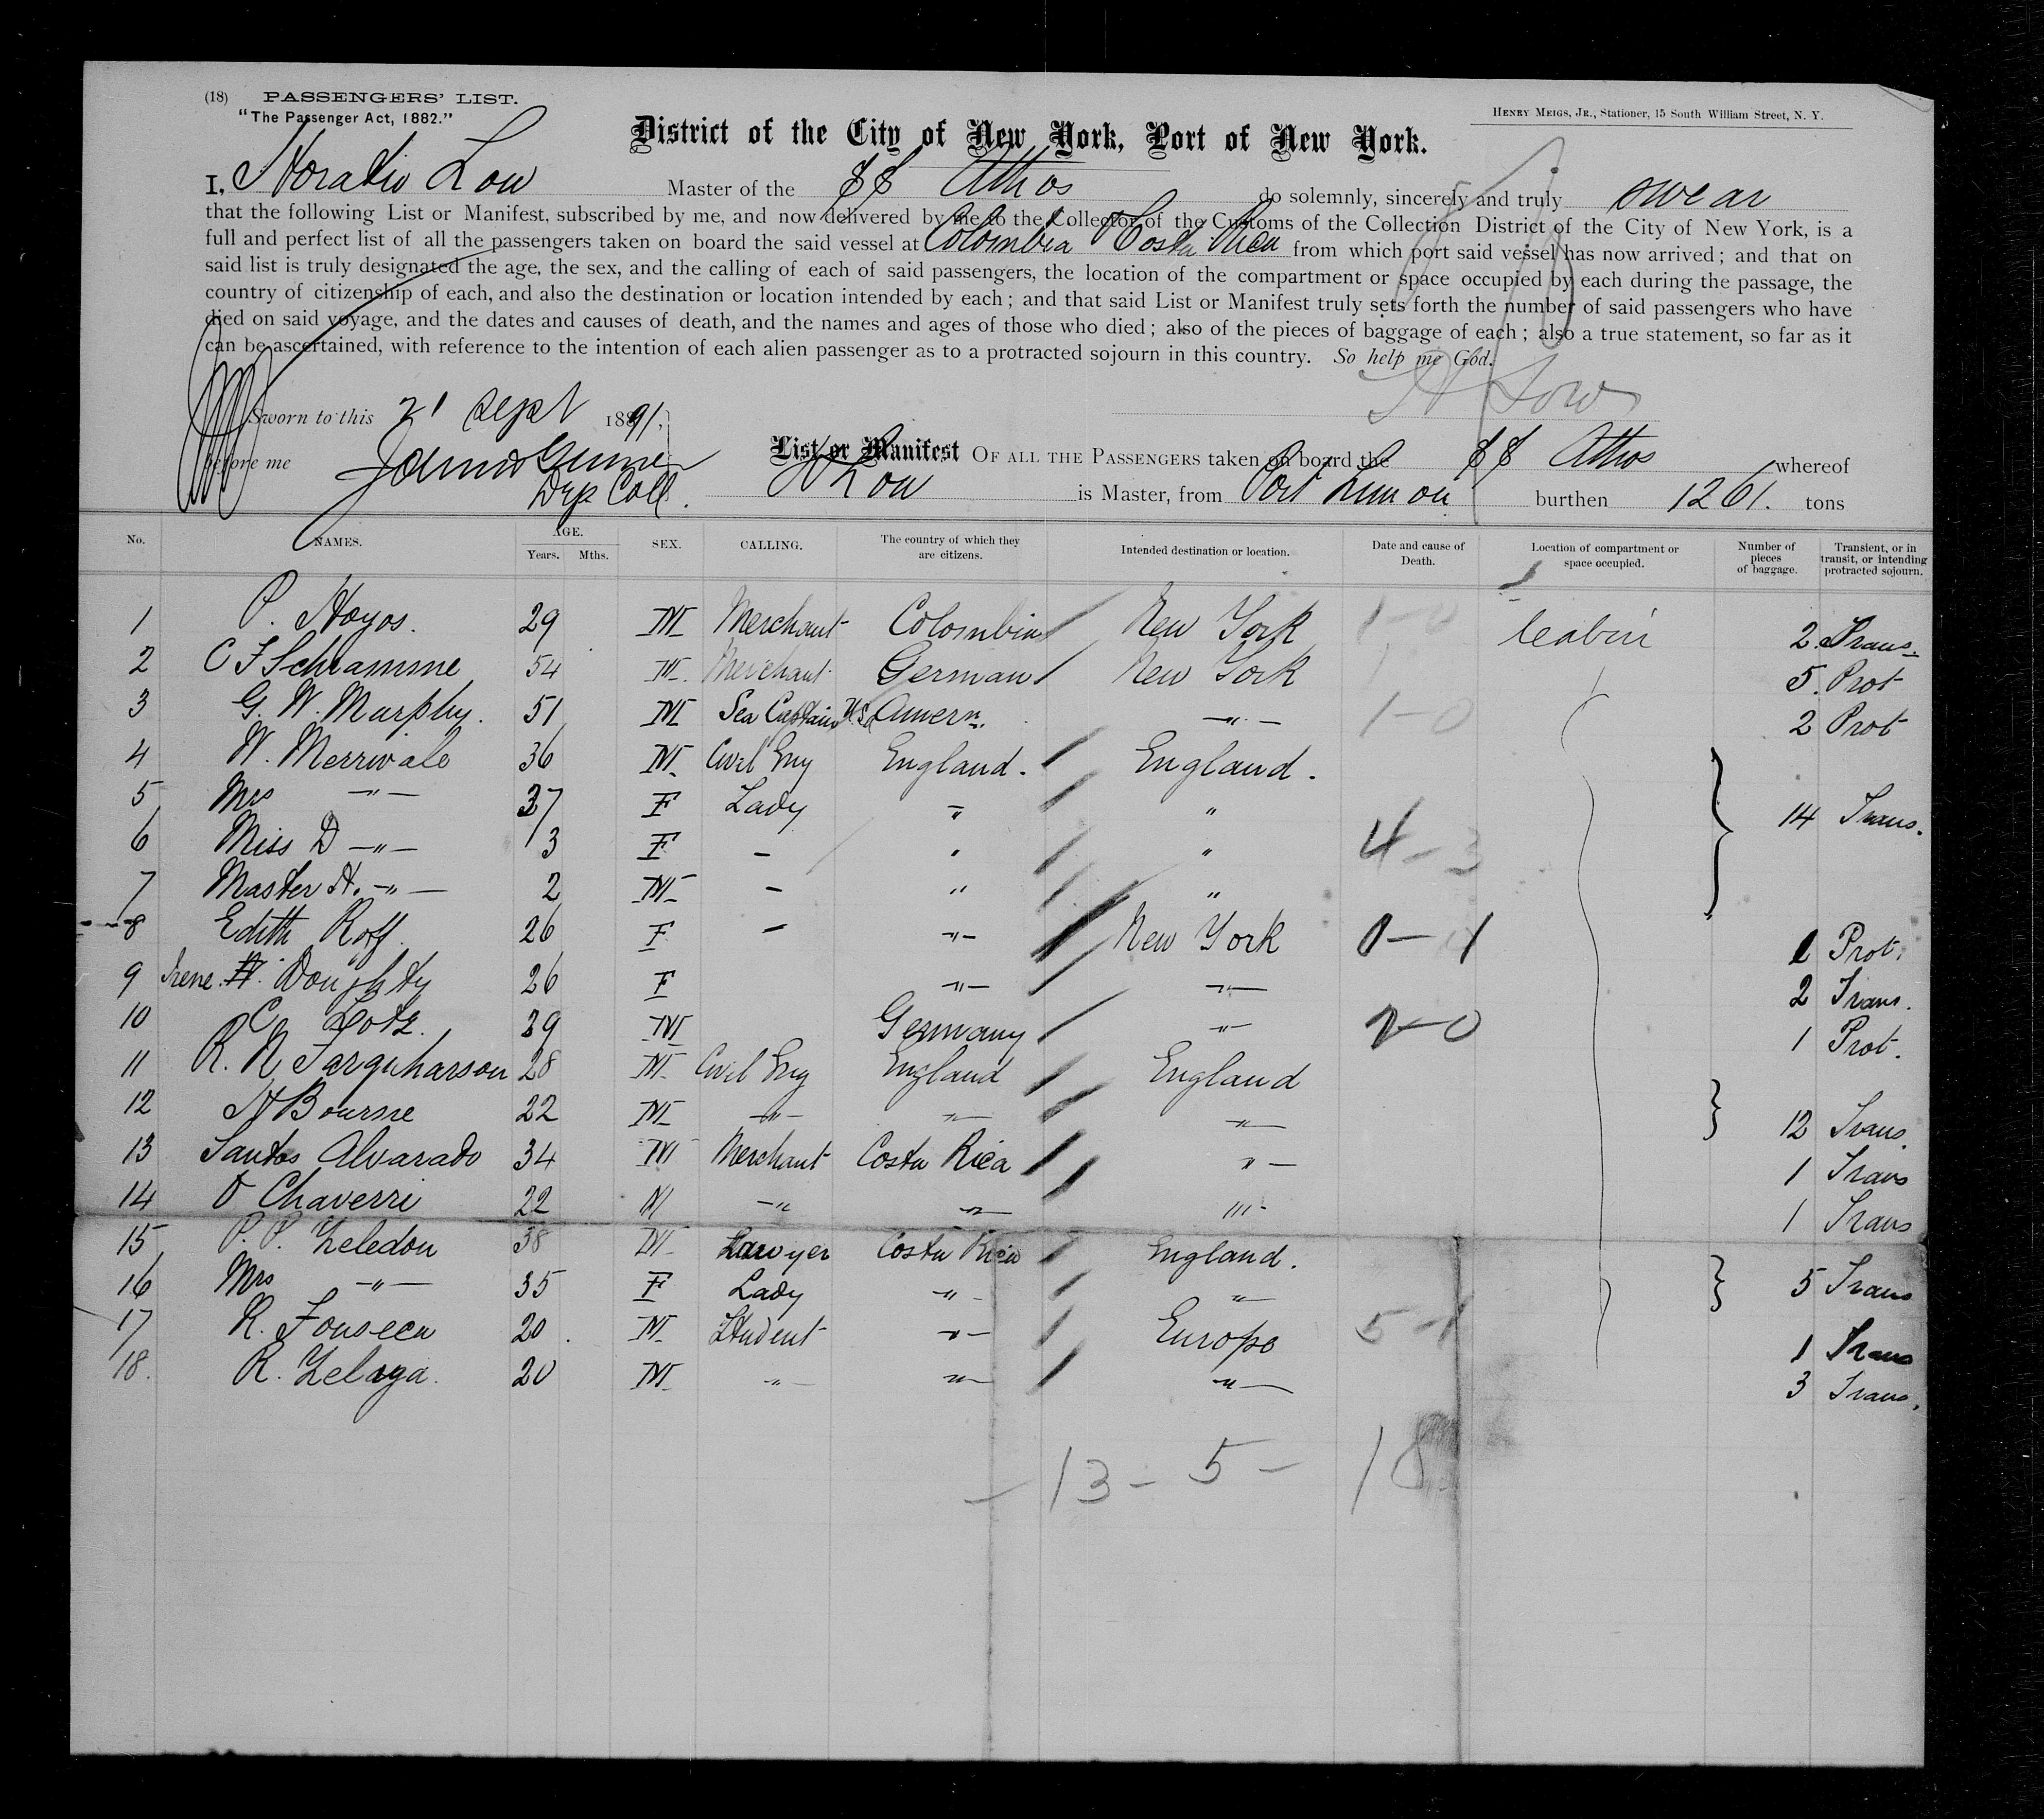 (18) PASSENGERS' LIST.
"The Passenger Act, 1882."
HENRY MEIGS, JR., Stationer, 15 South William Street, N. Y.
District of the City of New York, Port of New York.
I, Horatio Low Master of the SS Athos do solemnly, sincerely and truly swear
that the following List or Manifest, subscribed by me, and now delivered by me to the Collector of the Customs of the Collection District of the City of New York, is a
full and perfect list of all the passengers taken on board the said vessel at Colombia & Costa Rica from which port said vessel has now arrived; and that on
said list is truly designated the age, the sex, and the calling of each of said passengers, the location of the compartment or space occupied by each during the passage, the
country of citizenship of each, and also the destination or location intended by each; and that said List or Manifest truly sets forth the number of said passengers who have
died on said voyage, and the dates and causes of death, and the names and ages of those who died; also of the pieces of baggage of each; also a true statement, so far as it
can be ascertained, with reference to the intention of each alien passenger as to a protracted sojourn in this country. So help me God.
H Low
Sworn to this 21 Sept 1891,
before me
Dep Coll.
List or Manifest OF ALL THE PASSENGERS taken on board the SS Athos whereof
H Low is Master, from Port Limon burthen 1261. tons
No. NAMES. AGE. Years. Mths. SEX. CALLING. The country of which they are citizens. Intended destination or location. Date and cause of Death. Location of compartment or space occupied. Number of pieces of baggage. Transient, or in transit, or intending protracted sojourn.
1 P. Hoyos. 29 M Merchant Colombia New York 1-0 Cabin 2 Trans.
2 C F Schramme 54 M. Merchant German New York 5. Prot
3 G. W. Murphy. 51 M Sea Captain U.S. Amern. -"- 1-0 2 Prot
4 W. Merrivale 36 M. Civil Eng England. England.
5 Mrs -"- 37 F Lady " "
14 Trans.
6 Miss D -"- 3 F - " " 4-3
7 Master H. -"- 2 M - " "
8 Edith Roff 26 F - -"- New York 0-1 1 Prot.
9 Irene H. Doughty 26 F -"- -"- 2 Trans.
10 C. Lotz. 29 M Germany -"- 1 Prot.
11 R. N Farquharson 28 M Civil Eng England England
12 H Bourne 22 M -"- -"- -"- 12 Trans.
13 Santos Alvarado 34 M Merchant Costa Rica "- 1 Trans
14 O Chaverri 22 M -"- -"- "- 1 Trans
15 P. P. Zeledon 38 M Lawyer Costa Rica England.
16 Mrs -"- 35 F Lady -"- -"- 5 Trans
17 R. Fonseca 20. M Student -"- Europe 5-1 1 Trans
18. R. Zelaya. 20 M -"- -"- -"- 3 Trans.
- 13 - 5 - 18